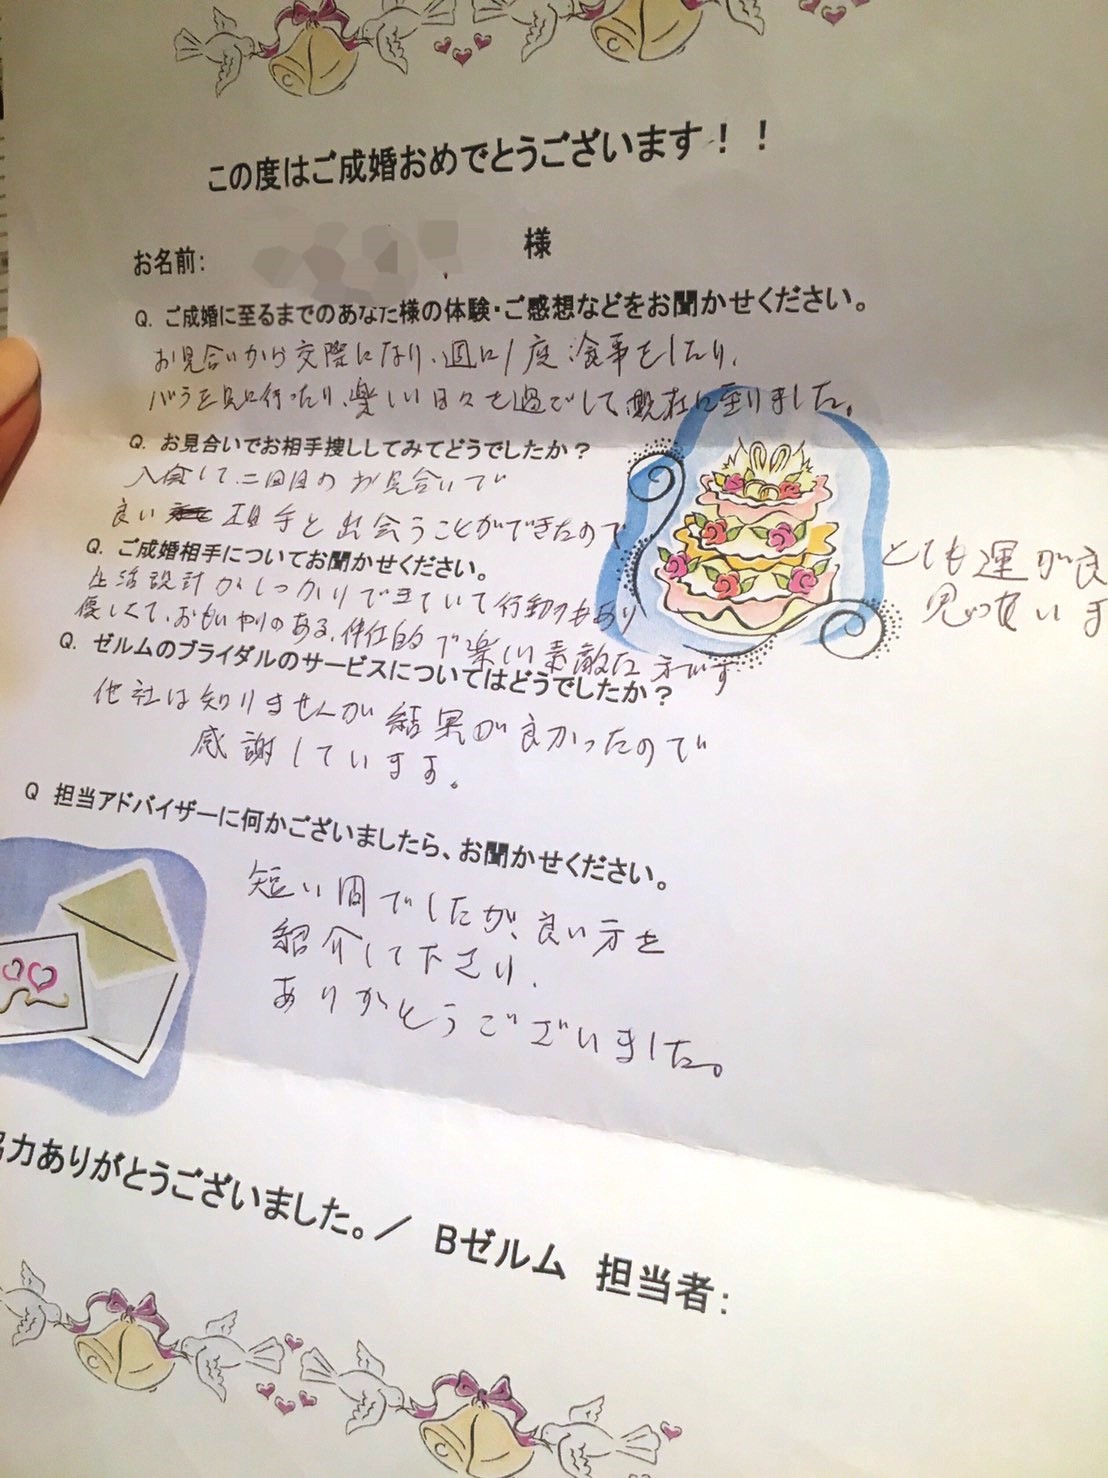 この度はご成婚おめでとうございます！！
お名前: 様
Q. ご成婚に至るまでのあなた様の体験・ご感想などをお聞かせください。
お見合いから交際になり、週に1度食事をしたり、
バラを見に行ったり、楽しい日々を過ごして現在に至りました。
Q. お見合いでお相手捜ししてみてどうでしたか？
入会して、二回目のお見合いで
良い 相手と出会うことができたので
とても運が良
思っています
Q. ご成婚相手についてお聞かせください。
生活設計がしっかりできていて行動力もあり
優しくて、おもいやりのある、 的で楽しい素敵な方です
Q. ゼルムのブライダルのサービスについてはどうでしたか？
他社は知りませんが結果が良かったので
感謝しています。
Q 担当アドバイザーに何かございましたら、お聞かせください。
短い間でしたが、良い方を
紹介して下さり、
ありがとうございました。
力ありがとうございました。／ Bゼルム 担当者: